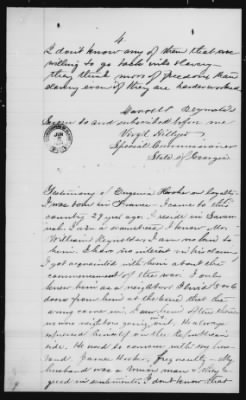 4
I don't know any of them that are
willing to go back into slavery
they think more of freedom than
slavery even if they are harder worked
Garrett Reynolds
Sworn to and subscribed before me
Virgil Hillyer
Special Commissioner
State of Georgia
Testimony of Eugenia Hooker on loyalty
I was born in France. I came to this
country 29 years ago. I reside in Savan
nah. I am a mantress. I know Mr.
William Reynolds. I am no kin to
him. I have no interest in his claim
I got acquainted with him about the
commencement of the war. I only
knew him as a neighbor. I lived 5 or 6
doors from him at the time that the
army came in. I
was neighbor going out. He always
expressed himself on the Republican
side. He used to converse with my hus
band James Hooker, frequently. My
husband was a Union man & they a
greed in sentiments. I don't know that